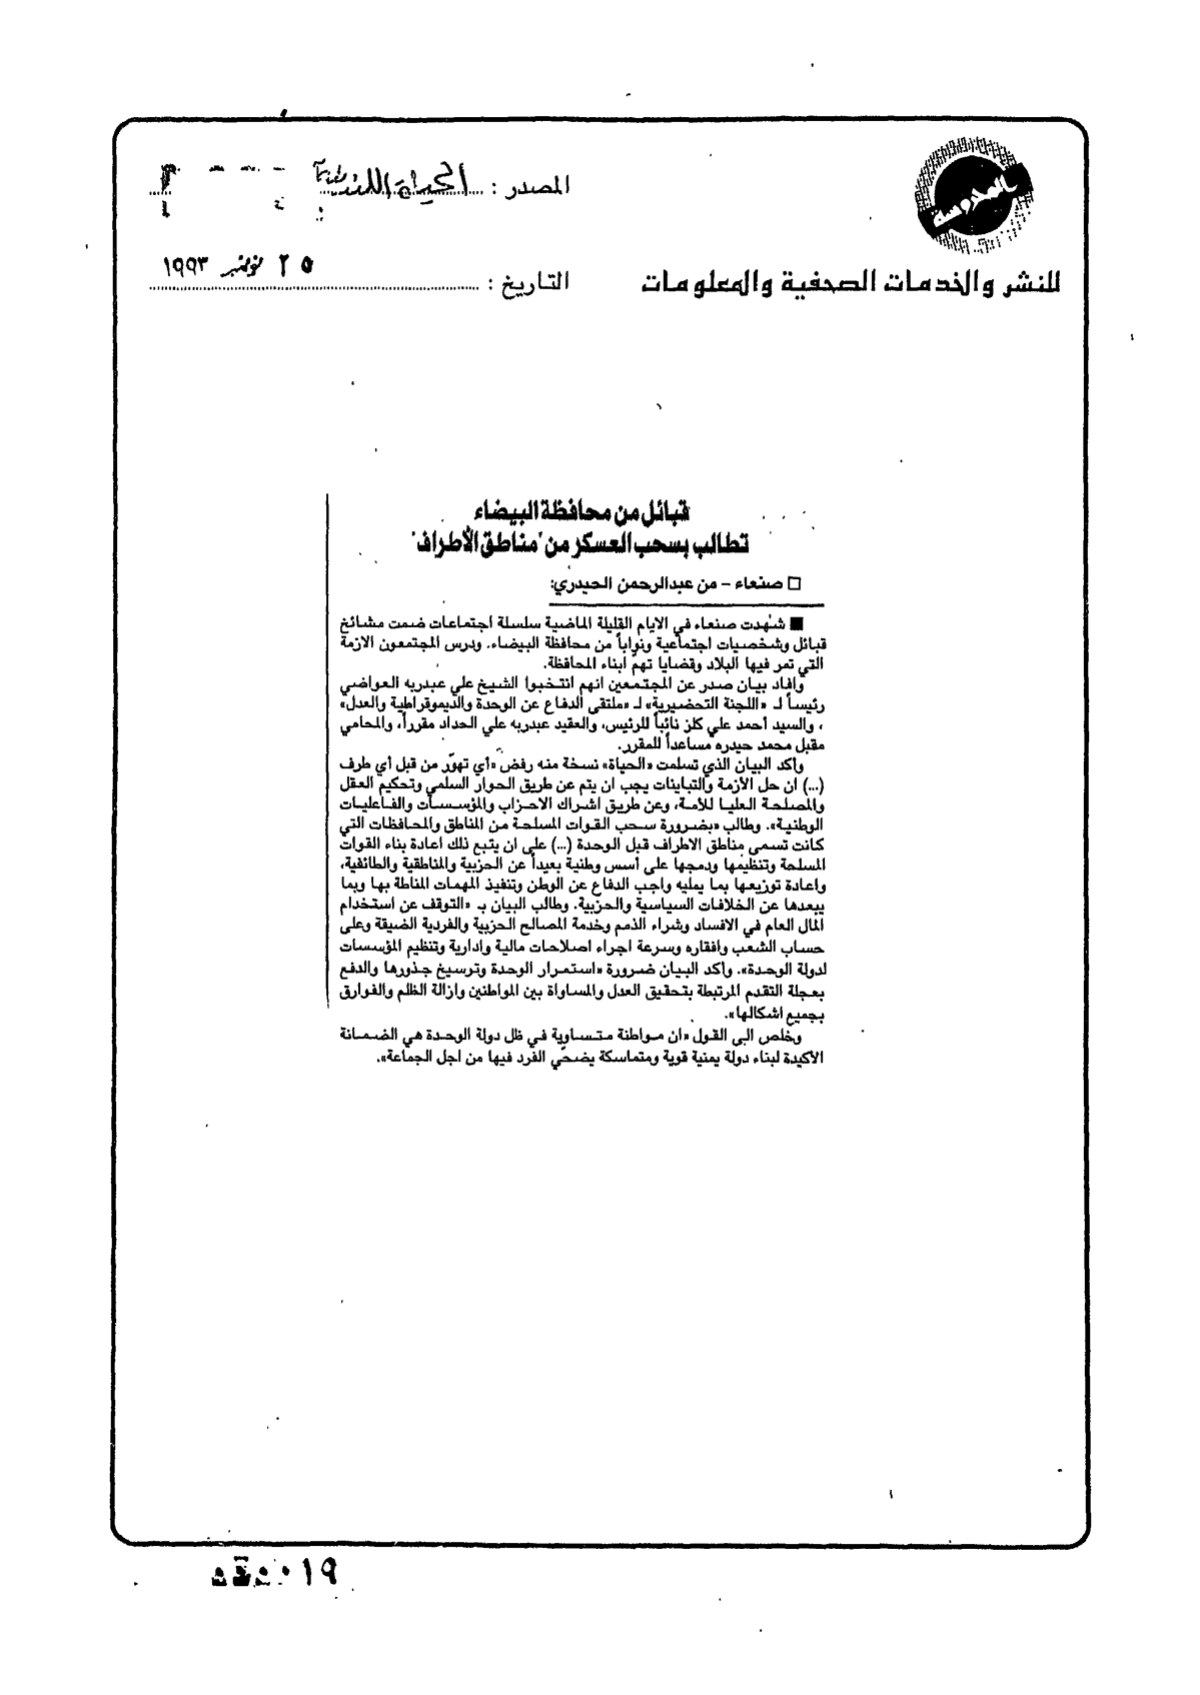 المحروسة
للنشر والخدمات الصحفية والمعلومات
المصدر : الحياة اللندنية
التاريخ : ٢٥ نوفمبر ١٩٩٣
قبائل من محافظة البيضاء
تطالب بسحب العسكر من "مناطق الأطراف"
□ صنعاء – من عبدالرحمن الحيدري:
■ شهدت صنعاء في الايام القليلة الماضية سلسلة اجتماعات ضمت مشائخ
قبائل وشخصيات اجتماعية ونواباً من محافظة البيضاء. ودرس المجتمعون الازمة
التي تمر فيها البلاد وقضايا تهمّ أبناء المحافظة.
وافاد بيان صدر عن المجتمعين انهم انتخبوا الشيخ علي عبدربه العواضي
رئيساً لـ «اللجنة التحضيرية» لـ «ملتقى الدفاع عن الوحدة والديموقراطية والعدل»
، والسيد أحمد علي كلز نائباً للرئيس، والعقيد عبدربه علي الحداد مقرراً، والمحامي
مقبل محمد حيدره مساعداً للمقرر.
وأكد البيان الذي تسلمت «الحياة» نسخة منه رفض «أي تهوّر من قبل أي طرف
(...) ان حل الأزمة والتباينات يجب ان يتم عن طريق الحوار السلمي وتحكيم العقل
والمصلحة العليا للأمة، وعن طريق اشراك الاحزاب والمؤسسات والفاعليات
الوطنية». وطالب «بضرورة سحب القوات المسلحة من المناطق والمحافظات التي
كانت تسمى مناطق الاطراف قبل الوحدة (...) على ان يتبع ذلك اعادة بناء القوات
المسلحة وتنظيمها ودمجها على أسس وطنية بعيداً عن الحزبية والمناطقية والطائفية،
واعادة توزيعها بما يمليه واجب الدفاع عن الوطن وتنفيذ المهمات المناطة بها وبما
يبعدها عن الخلافات السياسية والحزبية. وطالب البيان بـ «التوقف عن استخدام
المال العام في الافساد وشراء الذمم وخدمة المصالح الحزبية والفردية الضيقة وعلى
حساب الشعب وافقاره وسرعة اجراء اصلاحات مالية وادارية وتنظيم المؤسسات
لدولة الوحدة». وأكد البيان ضرورة «استمرار الوحدة وترسيخ جذورها والدفع
بعجلة التقدم المرتبطة بتحقيق العدل والمساواة بين المواطنين وازالة الظلم والفوارق
بجميع اشكالها».
وخلص الى القول «ان مواطنة متساوية في ظل دولة الوحدة هي الضمانة
الأكيدة لبناء دولة يمنية قوية ومتماسكة يضحّي الفرد فيها من اجل الجماعة».